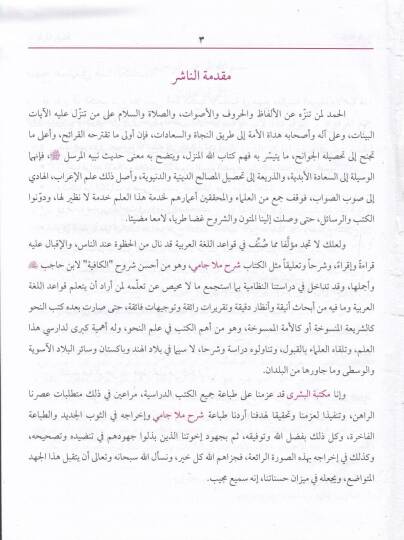 ٣
مقدمة الناشر
الحمد لمن تنزّه عن الألفاظ والحروف والأصوات، والصلاة والسلام على من تنزّل عليه الآيات
البينات، وعلى آله وأصحابه هداة الأمة إلى طريق النجاة والسعادات، فإن أولى ما تقترحه القرائح، وأعلى ما
تجنح إلى تحصيله الجوانح، ما يتيسّر به فهم كتاب الله المنزل، ويتضح به معنى حديث نبيه المرسل ﷺ، فإنهما
الوسيلة إلى السعادة الأبدية، والذريعة إلى تحصيل المصالح الدينية والدنيوية، وأصل ذلك علم الإعراب، الهادي
إلى صوب الصواب، فوقف جمع من العلماء والمحققين أعمارهم لخدمة هذا العلم خدمة لا نظير لها، ودوّنوا
الكتب والرسائل، حتى وصلت إلينا المتون والشروح غضا طريا، لامعا مضيئا.
ولعلك لا تجد مؤلفا مما صُنِّف في قواعد اللغة العربية قد نال من الحظوة عند الناس، والإقبال عليه
قراءةً وإقراءً، وشرحاً وتعليقاً مثل الكتاب شرح ملا جامي، وهو من أحسن شروح "الكافية" لابن حاجب
وأجملها، وقد تداخل في دراستنا النظامية بما استجمع ما لا محيص عن تعلّمه لمن أراد أن يتعلم قواعد اللغة
العربية وما فيه من أبحاث أنيقة وأنظار دقيقة وتقريرات رائقة وتوجيهات فائقة، حتى صارت بعده كتب النحو
كالشريعة المنسوخة أو كالأمة الممسوخة، وهو من أهم الكتب في علم النحو، وله أهمية كبرى لدارسي هذا
العلم، وتلقاه العلماء بالقبول، وتناولوه دراسة وشرحا، لا سيما في بلاد الهند وباكستان وسائر البلاد الآسوية
والوسطى وما جاورها من البلدان.
وإنا مكتبة البشرى قد عزمنا على طباعة جميع الكتب الدراسية، مراعين في ذلك متطلبات عصرنا
الراهن، وتنفيذا لعزمنا وتحقيقا لهدفنا أردنا طباعة شرح ملا جامي وإخراجه في الثوب الجديد والطباعة
الفاخرة، وكل ذلك بفضل الله وتوفيقه، ثم بجهود إخوتنا الذين بذلوا جهودهم في تنضيده وتصحيحه،
وكذلك في إخراجه بهذه الصورة الرائعة، فجزاهم الله كل خير، ونسأل الله سبحانه وتعالى أن يتقبل هذا الجهد
المتواضع، ويجعله في ميزان حسناتنا، إنه سميع مجيب.